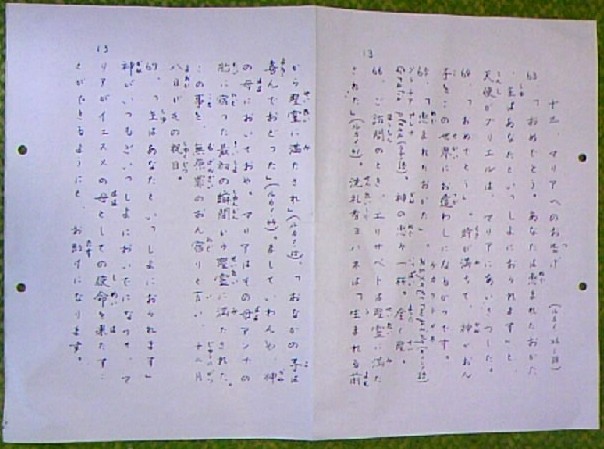 十三 マリアへのお告げ (ルカ1 26-28)
63 「おめでとう。あなたは恵まれたおかた
。主はあなたといっしょにおられます」と、
天使ガブリエルは、マリアにあいさつした。
64. 「おめでとう」。時が満ちて、神がおん
子をこの世界にお遣わしになるからです。
65. 「恵まれたおかた」。
Gratia plena 神の恵み一杯。
66. ご訪問のとき、エリサベトは聖霊に満た
された」(ルカ1 41) 洗礼者ヨハネは「生まれる前
から聖霊に満たされ」(ルカ1 15)、「おなかの子は
喜んでおどった」(ルカ1 44)。まして、いわんや、神
の母においておや。マリアはその母アンナの
胎に宿った最初の瞬間から聖霊に満たされた。
この事を、無原罪のおん宿りと言い、十二月
八日がその祝日。
67. 「主はあなたといっしょにおられます」
神がいつもごいっしょにおいでになって、マ
リアがイエススの母としての使命を果たすこ
とができるようにと、お助けになります。
13
13